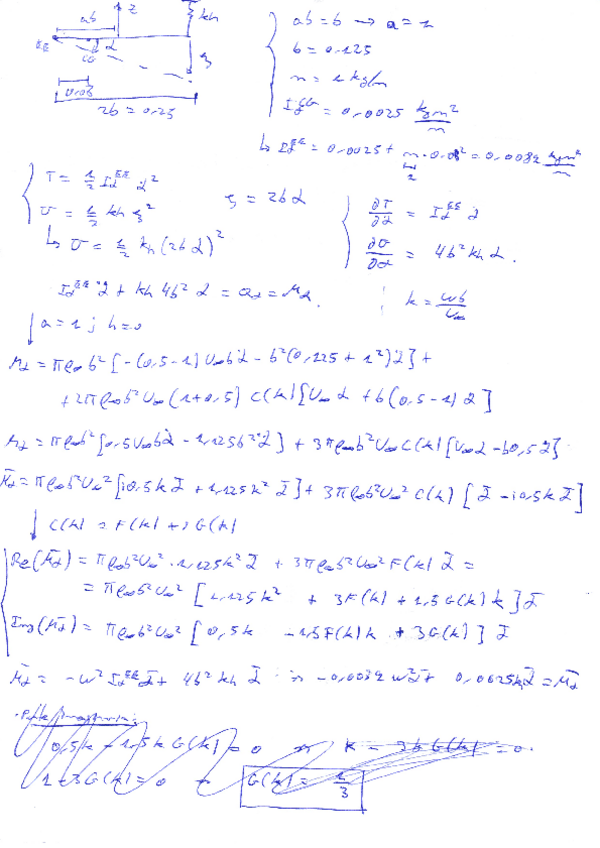 ab
z
kh
EE
CG
α
ξ
0.08
2b = 0.25
ab = b → a = 1
b = 0.125
m = 1 kg/m
Iα^CG = 0,0025 kgm²/m
↳ Iα^EE = 0,0025 + m · 0.08² = 0,0082 kgm²/m
T = 1/2 Iα^EE α̇²
U = 1/2 kh ξ²
ξ = 2bα
↳ U = 1/2 kh (2bα)²
∂U/∂α = 4b² kh α.
Iα^EE α̈ + kh 4b² α = Qα = Mα.
k = ωb/U∞
↓ a = 1 ; h = 0
Mα = πρ∞b² [-(0,5-1) U∞bα̇ - b²(0,125 + 1²)α̈] +
+ 2πρ∞b²U∞ (1+0,5) C(k) [U∞α + b(0,5-1)α̇]
Mα = πρ∞b² [0,5U∞bα̇ - 1,125b²α̈] + 3πρ∞b²U∞C(k) [U∞α - b0,5α̇]
M̄α = πρ∞b²U∞² [i0,5kᾱ + 1,125k²ᾱ] + 3πρ∞b²U∞² C(k) [ᾱ - i0,5kᾱ]
↓ C(k) = F(k) + iG(k)
Re(M̄α) = πρ∞b²U∞² · 1,125k²ᾱ + 3πρ∞b²U∞² F(k) ᾱ =
= πρ∞b²U∞² [1,125k² + 3F(k) + 1,5G(k)k] ᾱ
Img(M̄α) = πρ∞b²U∞² [0,5k - 1,5F(k)k + 3G(k)] ᾱ
M̄α = -ω² Iα^EE ᾱ + 4b² kh ᾱ ⇒ -0,0082 ω²ᾱ + 0,0625khᾱ = M̄α
0,5k - 1,5kG(k) = 0 ⇒ k - 3kG(k) = 0.
1 - 3G(k) = 0 → G(k) = 1/3